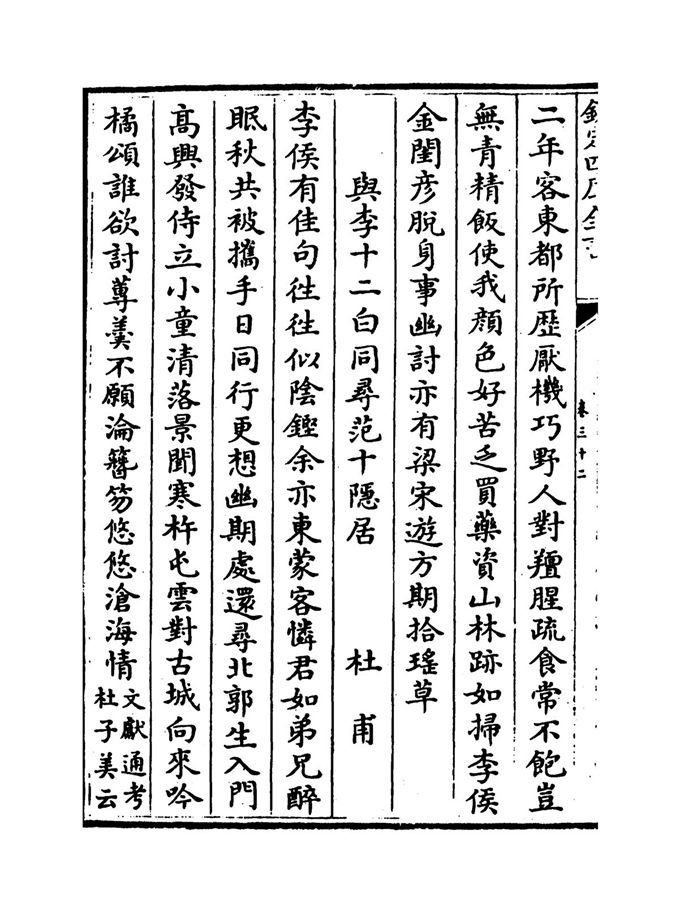 欽定四庫全書
卷三十二
二年客東都所歷厭機巧野人對羶腥疏食常不飽豈
無青精飯使我顔色好苦乏買藥資山林跡如掃李侯
金閨彦脫身事幽討亦有梁宋遊方期拾瑤草
與李十二白同尋范十隱居 杜甫
李侯有佳句往往似陰鏗余亦東蒙客憐君如弟兄醉
眠秋共被攜手日同行更想幽期處還尋北郭生入門
髙興發侍立小童清落景聞寒杵屯雲對古城向來吟
橘頌誰欲討蓴羹不願論簪笏悠悠滄海情文獻通考
杜子美云